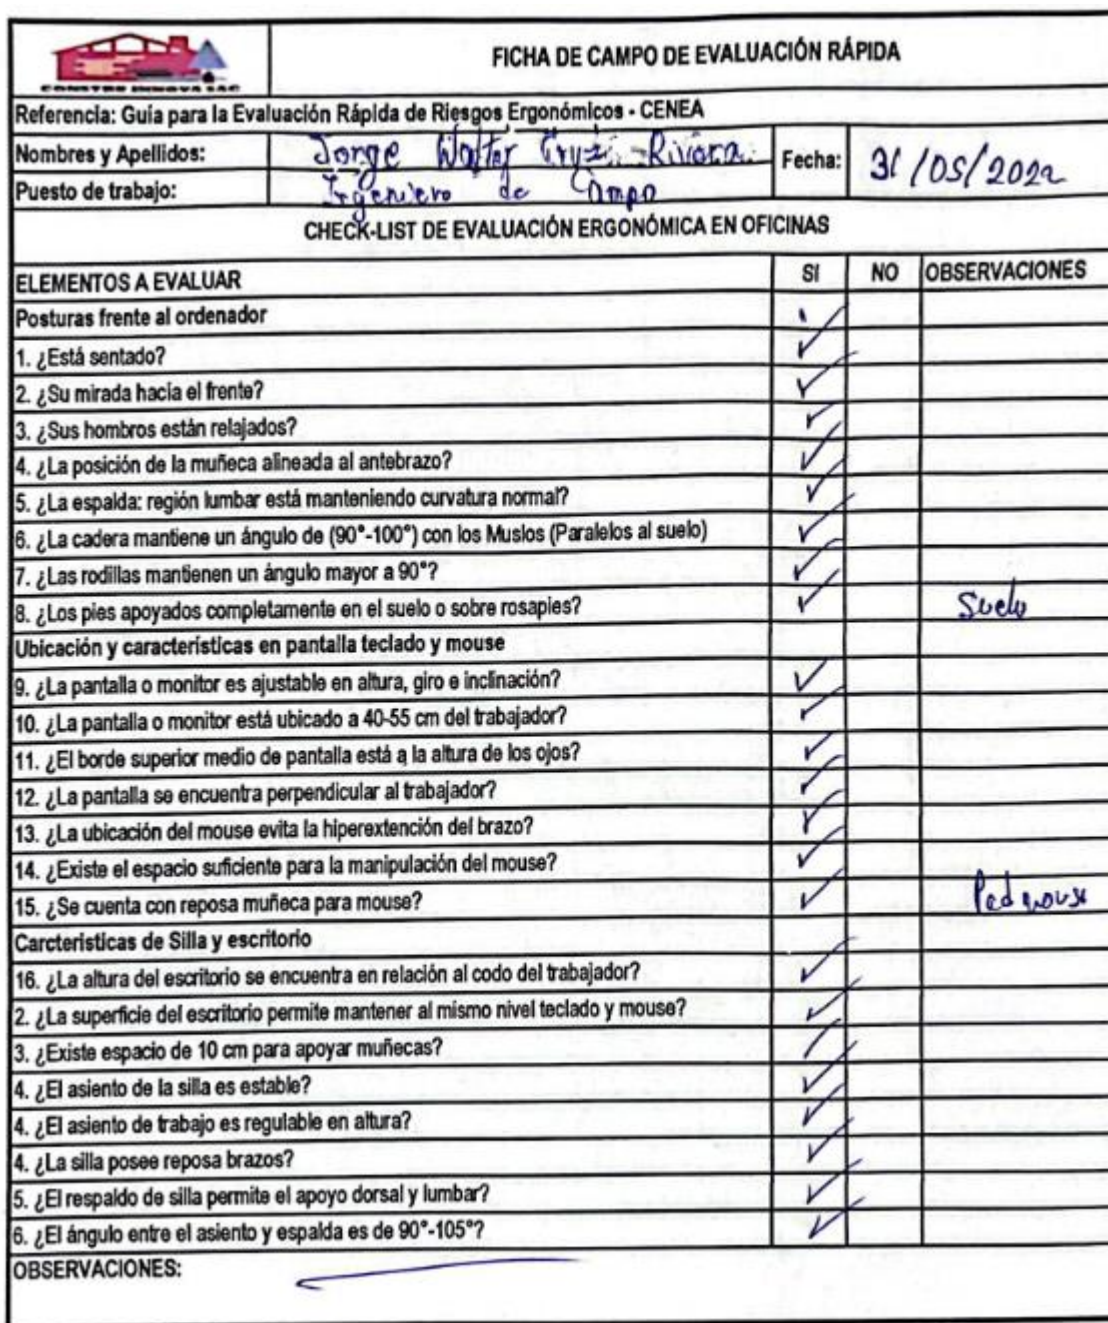 FICHA DE CAMPO DE EVALUACIÓN RÁPIDA
CONSTRU INNOVA SAC
Referencia: Guía para la Evaluación Rápida de Riesgos Ergonómicos - CENEA
Nombres y Apellidos: Jorge Walter Rivera
Fecha: 31/05/2022
Puesto de trabajo: Ingeniero de Campo
CHECK-LIST DE EVALUACIÓN ERGONÓMICA EN OFICINAS
ELEMENTOS A EVALUAR SI NO OBSERVACIONES
Posturas frente al ordenador
1. ¿Está sentado? ✓
2. ¿Su mirada hacia el frente? ✓
3. ¿Sus hombros están relajados? ✓
4. ¿La posición de la muñeca alineada al antebrazo? ✓
5. ¿La espalda: región lumbar está manteniendo curvatura normal? ✓
6. ¿La cadera mantiene un ángulo de (90°-100°) con los Muslos (Paralelos al suelo) ✓
7. ¿Las rodillas mantienen un ángulo mayor a 90°? ✓
8. ¿Los pies apoyados completamente en el suelo o sobre rosapies? ✓ Suelo
Ubicación y características en pantalla teclado y mouse
9. ¿La pantalla o monitor es ajustable en altura, giro e inclinación? ✓
10. ¿La pantalla o monitor está ubicado a 40-55 cm del trabajador? ✓
11. ¿El borde superior medio de pantalla está a la altura de los ojos? ✓
12. ¿La pantalla se encuentra perpendicular al trabajador? ✓
13. ¿La ubicación del mouse evita la hiperextención del brazo? ✓
14. ¿Existe el espacio suficiente para la manipulación del mouse? ✓
15. ¿Se cuenta con reposa muñeca para mouse? ✓ Pad mouse
Carcteristicas de Silla y escritorio
16. ¿La altura del escritorio se encuentra en relación al codo del trabajador? ✓
2. ¿La superficie del escritorio permite mantener al mismo nivel teclado y mouse? ✓
3. ¿Existe espacio de 10 cm para apoyar muñecas? ✓
4. ¿El asiento de la silla es estable? ✓
4. ¿El asiento de trabajo es regulable en altura? ✓
4. ¿La silla posee reposa brazos? ✓
5. ¿El respaldo de silla permite el apoyo dorsal y lumbar? ✓
6. ¿El ángulo entre el asiento y espalda es de 90°-105°? ✓
OBSERVACIONES: